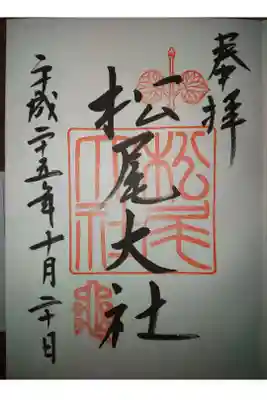 奉拝
松尾大社
松尾大社
平成二十五年十月二十日